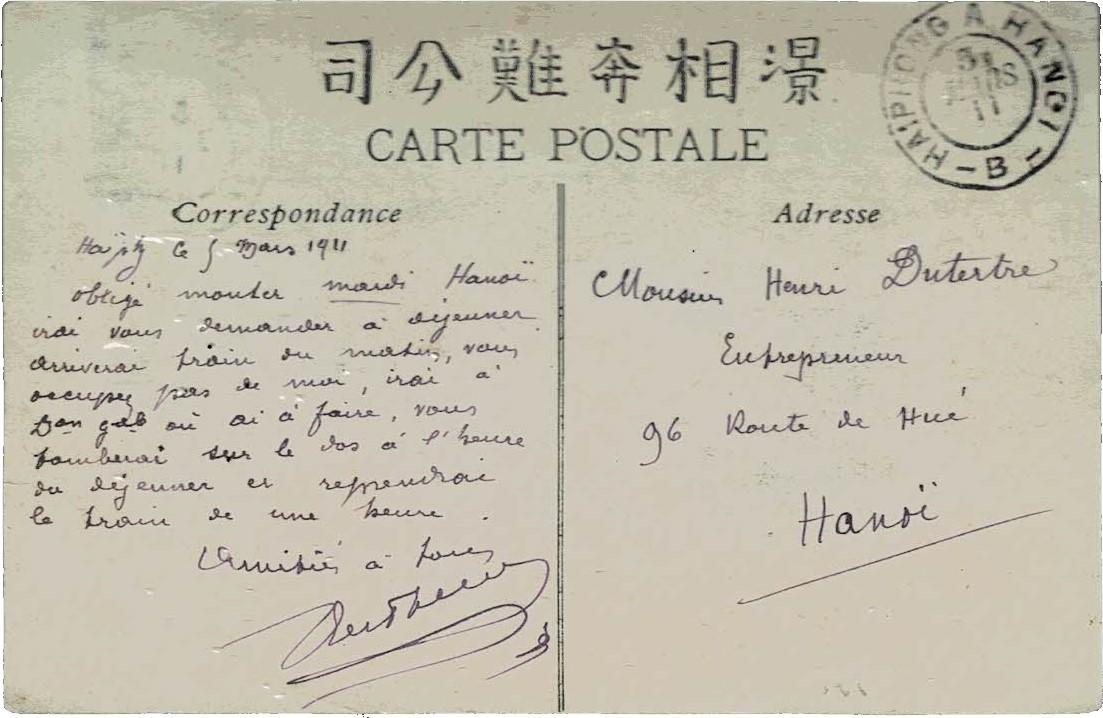 司公難奔相澋
CARTE POSTALE
HAÏPHONG A HANOI - B -
11
Correspondance
Haïph le 5 Mars 1911
obligé monter mardi Hanoï
irai vous demander à déjeuner
arriverai train du matin, vous
occupez pas de moi, irai à
où ai à faire, vous
tomberai sur le dos à l'heure
du déjeuner et reprendrai
le train de une heure.
Amitiés à tous
Adresse
Monsieur Henri Dutertre
Entrepreneur
96 Route de Hué
Hanoï